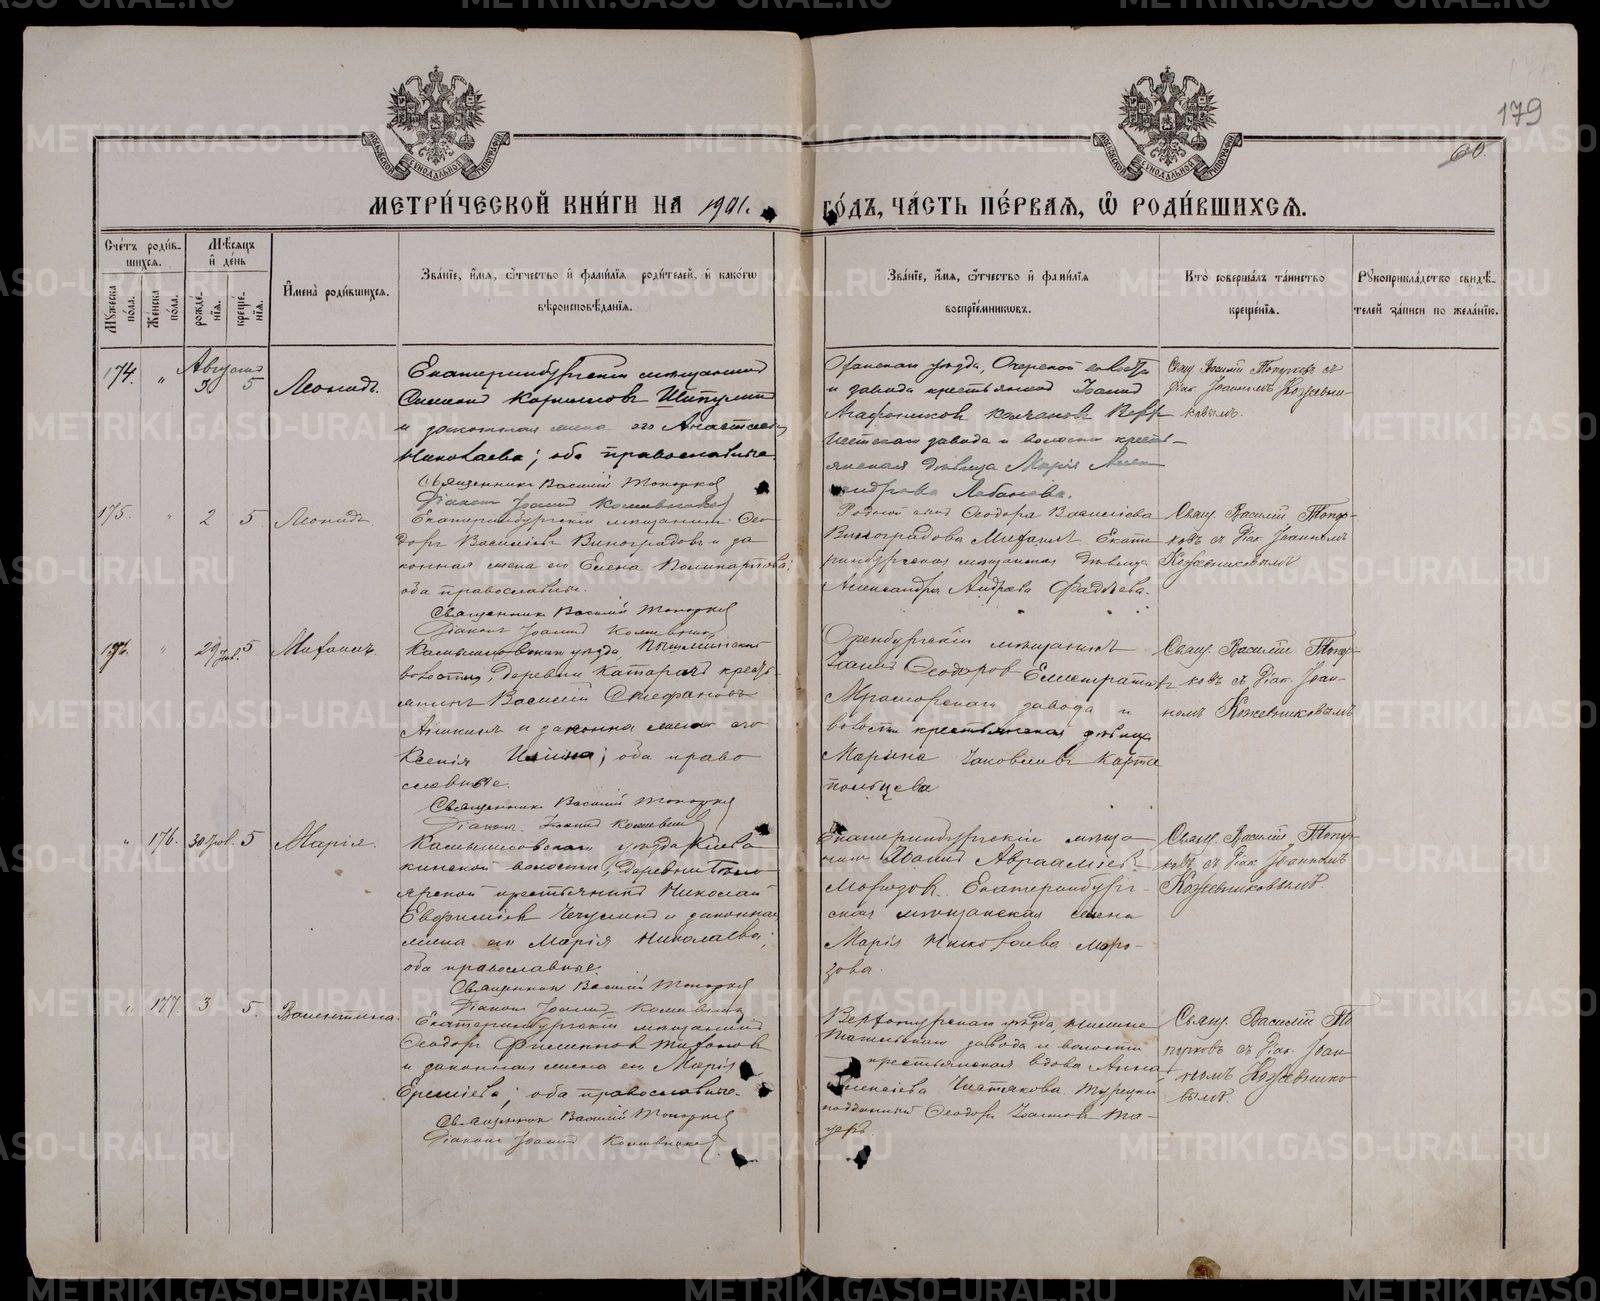 179
60.
МОСКОВСКОЙ СѴНОДАЛЬНОЙ ТИПОГРАФІИ
МОСКОВСКОЙ СѴНОДАЛЬНОЙ ТИПОГРАФІИ
МЕТРИ́ЧЕСКОЙ КНИ́ГИ НА 1901.
ГО́ДЪ, ЧА́СТЬ ПЕ́РВАЯ, Ѡ҆ РОДИ́ВШИХСЯ.
Сче́тъ роди́в-
шихся.
Мꙋ́жеска по́ла.
Же́нска по́ла.
Мѣ́сяцъ
и҆ де́нь
рожде́нїя.
креще́нїя.
И҆мена̀ роди́вшихся.
Зва́нїе, и҆́мя, ѻ҆́тчество и҆ фами́лїя роди́телей, и҆ како́гѡ
вѣроисповѣ́данїя.
Зва́нїе, и҆́мя, ѻ҆́тчество и҆ фами́лїя
воспрїе́мниковъ.
Кто̀ соверша́лъ та́инство
креще́нїя.
Рꙋкоприкла́дство свидѣ́-
телей за́писи по жела́нїю.
174.
"
Августъ
5
Леонидъ.
Екатеринбургскій мѣщанинъ
Симеонъ Корниловъ Шипулинъ
и законная жена его Анастасія
Николаева; оба православные.
Священникъ Василій Топорковъ
Діаконъ Іоаннъ Кожевниковъ
Оханскаго уѣзда, Очерской волости
и завода крестьянинъ Іоаннъ
Агафониковъ Колчановъ Верх
Исетскаго завода и волости кресть-
янская дѣвица Марія Алек
сандрова Лобанова.
Свящ. Василій Топорковъ съ
Діак. Іоанномъ Кожевни-
ковымъ.
175.
"
2
5
Леонидъ.
Екатеринбургскій мѣщанинъ Ѳео-
доръ Василіевъ Виноградовъ и за
конная жена его Елена Поликарпова;
оба православные.
Священникъ Василій Топорковъ
Діаконъ Іоаннъ Кожевниковъ
Родной сынъ Ѳеодора Василіева
Виноградова Михаилъ Екате
ринбургская мѣщанская дѣвица
Александра Андреева Фадѣева.
Свящ. Василій Топор-
ковъ съ Діак. Іоанномъ
Кожевниковымъ
"
29 Іюл.
5
Михаилъ.
Камышловскаго уѣзда Пышминской
волости, деревни Катарачъ кресть-
янинъ Василій Стефановъ
и законная жена его
Ксенія Ильина; оба право
славные.
Священникъ Василій Топорковъ
Діаконъ Іоаннъ Кожевниковъ
Оренбургскій мѣщанинъ
Іоаннъ Ѳеодоровъ
Мраморскаго завода и
волости крестьянская дѣвица
Марина Іаковлева Карта
польцева
Свящ. Василій Топор-
ковъ съ Діак. Іоан-
номъ Кожевниковымъ
"
176.
30 Іюл.
5
Марія.
Камышловскаго уѣзда Клева
кинской волости, деревни Бѣло
ярской крестьянинъ Николай
Евфиміевъ Чечулинъ и законная
жена его Марія Николаева;
оба православные.
Священникъ Василій Топорковъ
Діаконъ Іоаннъ Кожевниковъ
Екатеринбургскій мѣща-
нинъ Іоаннъ Авраміевъ
Морозовъ. Екатеринбург-
ская мѣщанская жена
Марія Николаева Моро-
зова.
Свящ. Василій Топор-
ковъ съ Діак. Іоанномъ
Кожевниковымъ.
"
177.
3
5.
Валентина.
Екатеринбургскій мѣщанинъ
Ѳеодоръ Филипповъ
и законная жена его Марія
оба православные.
Священникъ Василій Топорковъ
Діаконъ Іоаннъ Кожевниковъ
Верхотурскаго уѣзда, Нижне
Тагильскаго завода и волости
крестьянская вдова Анна
Алексіева Чистякова. Турецкій
подданный Ѳеодоръ Іоанновъ
Свящ. Василій То
порковъ съ Діак. Іоан
номъ Кожевнико
вымъ.
METRIKI.GASO-URAL.RU